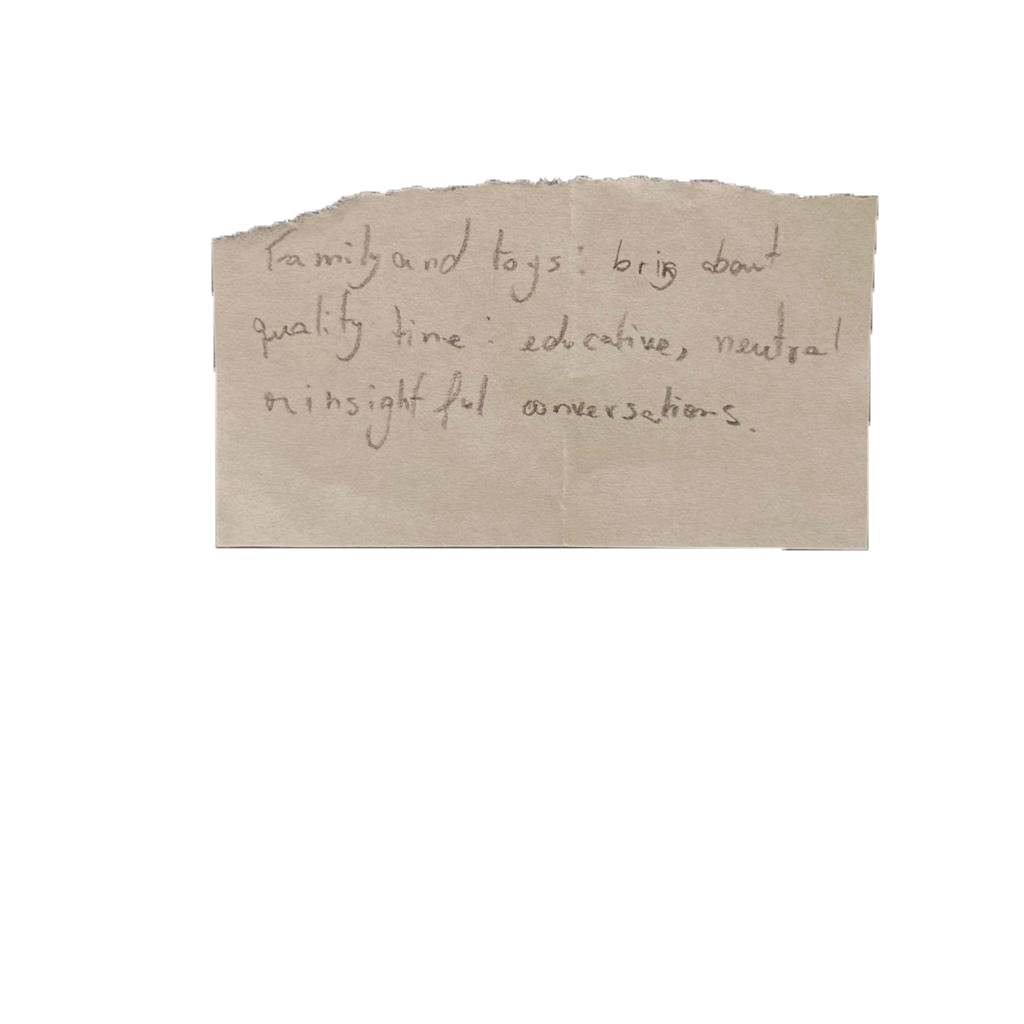 Family and toys: bring about
quality time: educative, neutral
or insightful conversations.